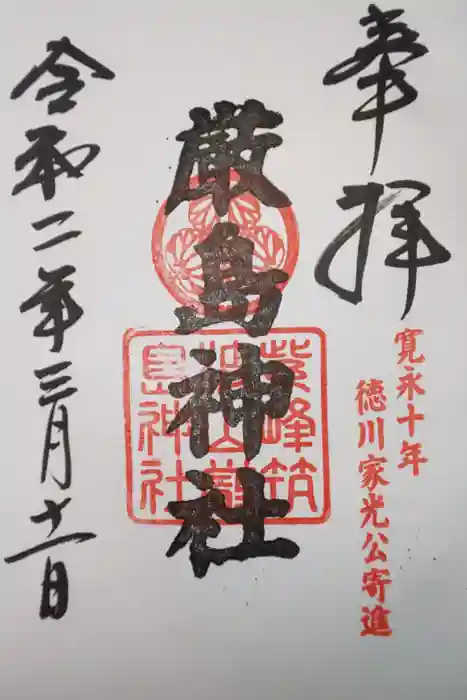 奉拝
寛永十年
徳川家光公寄進
厳島神社
紫峰筑
島神社
令和二年三月十一日